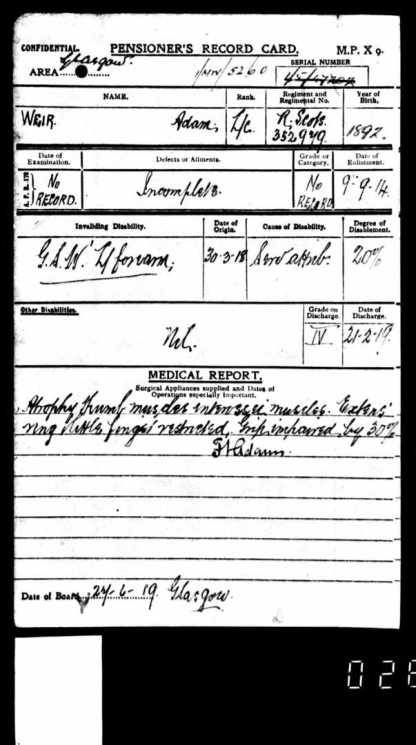 CONFIDENTIAL. PENSIONER'S RECORD CARD. M.P. X 9.
Glasgow.
AREA
/MW/5260 SERIAL NUMBER
NAME. Rank. Regiment and Regimental No. Year of Birth.
WEIR. Adam, L/c. R. Scots. 352979. 1892.
Date of Examination. Defects or Ailments. Grade or Category. Date of Enlistment.
No RECORD. Incomplete. No RECORD 9-9-14.
Invaliding Disability. Date of Origin. Cause of Disability. Degree of Disablement.
G.S.W. L/forearm, 30-3-18 Serv attrib. 20%
Other Disabilities. Grade on Discharge. Date of Discharge.
Nil. IV 21-2-19.
MEDICAL REPORT.
Surgical Appliances supplied and Dates of
Operations especially important.
Atrophy thumb muscles interossei muscles. Extens'
ring little finger restricted. Grip impaired by 30%
Date of Board 24-6-19. Glasgow.
028